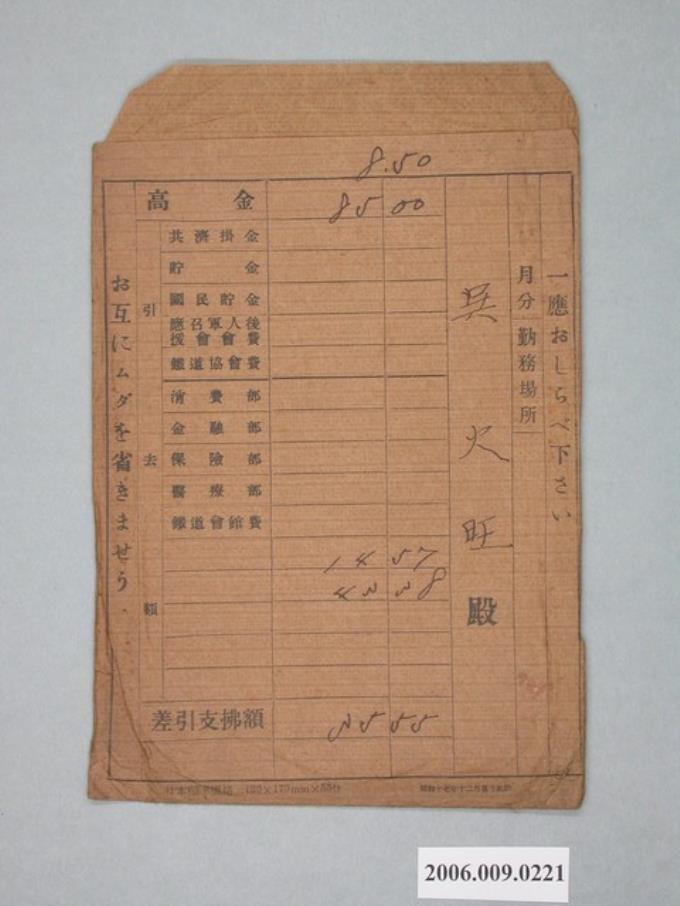 8.50
一應おしらべ下さい
月分 勤務場所
吴火旺殿
高金 85 00
共濟掛金
貯金
國民貯金
應召軍人後援會會費
鐵道協會費
消費部
金融部
保險部
醫療部
鐵道會館費
14 57
差引支拂額 35 55
引去額
お互にムダを省きませう
2006.009.0221